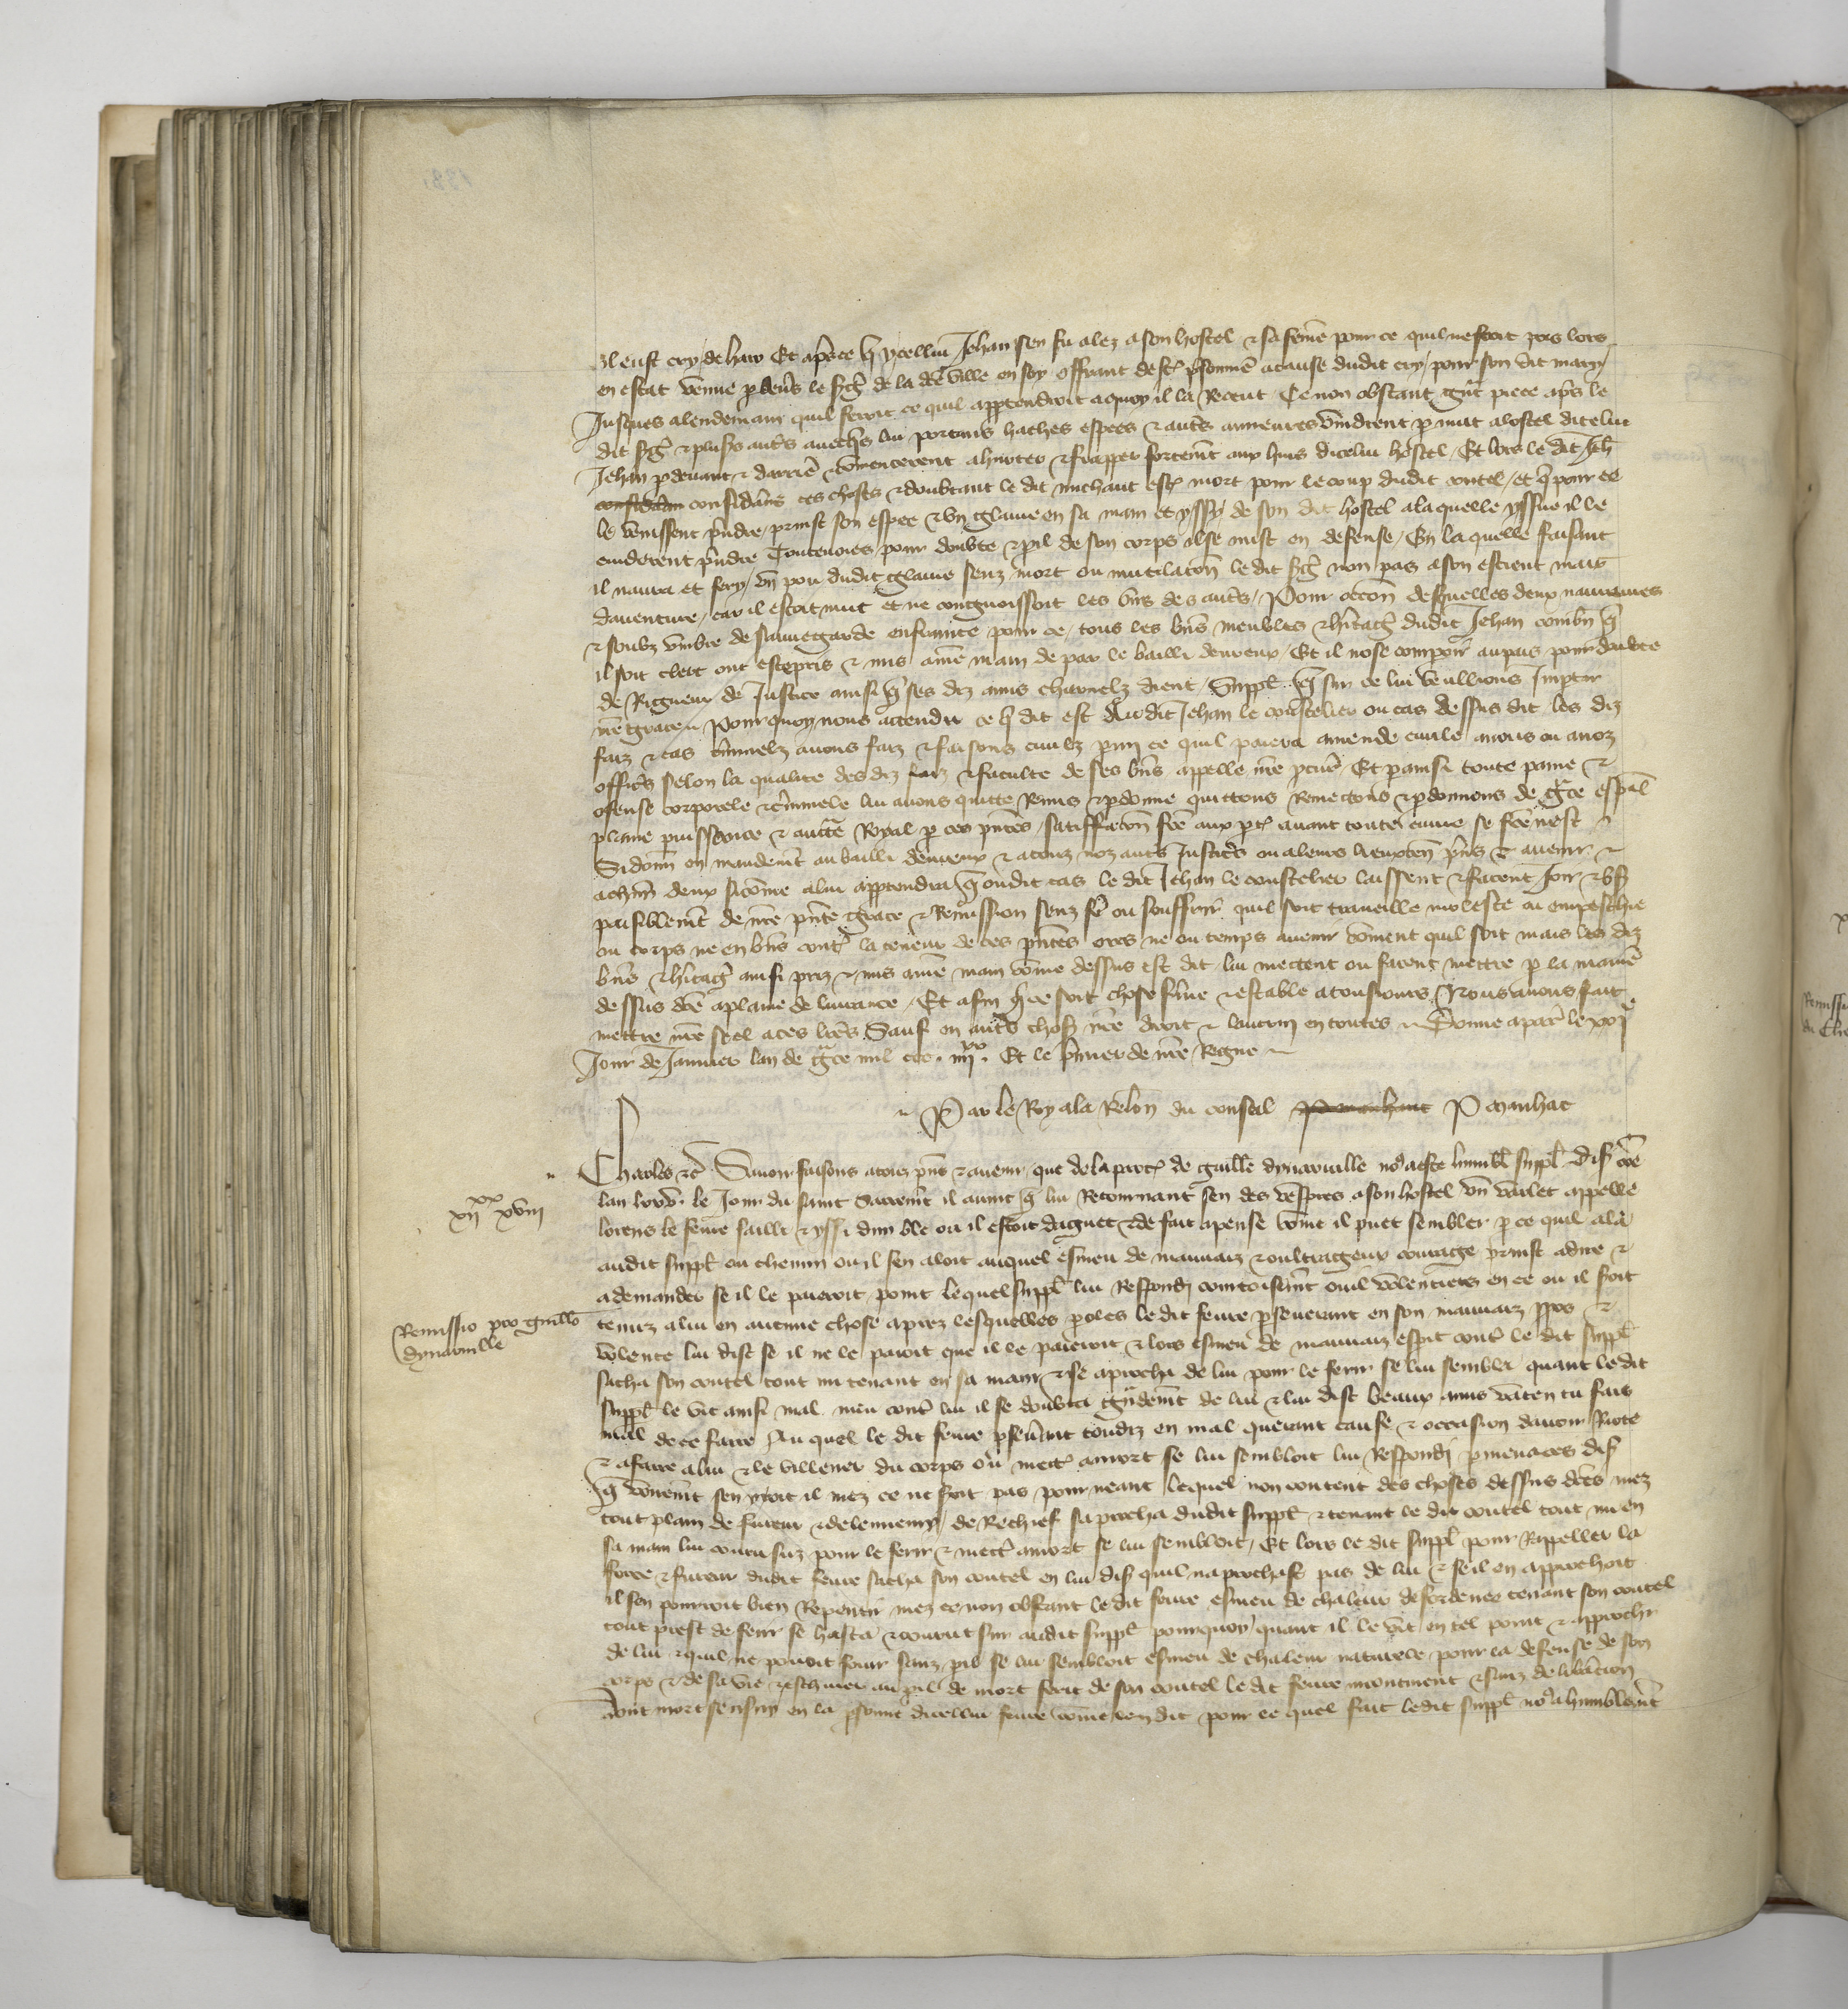 Il eust cry de haro Et apres ce q̃ ycellui Jehan sen fu alez a son hostel & sa feme pour ce quil nestoit pas lors
en estat venue p deūs le sg̃t de la dc̃e ville en soy offrant de psonne a cause dudit cry pour son dit mary
Jusques alendemain quil feroit ce quil apptendroit aquoy il la Recut Ce non obstant piece apr̃s le
dit & plus̃s aut̃s auecq̃s lui portans haches espees & aut̃s armeures vindrent p nuit alostel dicelui
Jehan p deuant & darrie & cōmencerent ahurter & frapper forteme͂t aux huis dicelui hostel Et lors le dit Jeh̃
considans ces choses & doubtant le dit michaut est̃ mort pour le coup dudit coutel et q̃ pour ce
le venissent p̃ndre prinst son espee & vn glaiue en sa main et yssy de son dit hostel a laquelle yssue il le
cuiderent p̃ndre Toutevoies pour doubte & pil de son corps il se mist en defense En la quelle faisant
il naura et fery vn pou dudit glaiue senz mort ou mutilacõn le dit sg̃t non pas a son escient mais
dauenture car il estoit nuit et ne congnoissoit les vns des aut̃s Pour occõn desquelles deux naureures
& soubz vmbre de sauuegarde enfrainte pour ce tous les biẽs meubles & h̃itag̃ dudit Jehan combñ q̃
il soit clerc ont este pris & mis a nr̃e main de par le bailli deureux Et il nose compoir̃ au pais pour doubte
de Rigueur de Justice ainsi q̃ ses diz amis charnelz dient Suppl̃ q̃ sur ce lui veullions Impartir
nr̃e grace Pourquoy nous attendu ce q̃ dit est Audit Jehan le coustelier ou cas dessus dit les diz
faiz & cas c̃minelz auons faiz & faisons ciuilz pmi ce quil paiera amende ciuile a nous ou a noz
offic̃s selon la qualite des diz faiz & faculte de ses biẽs appelle nr̃e pcur̃ Et p ainsi toute paine &
ofense corporele & c̃minele lui auons quitte Remis & pdonne quittons Remectons & pdonnons de gr̃ce esp̃al
plaine puissance & aucte͂ Royal p ces pñtes satisfaccõn fc̃e aux pt̃ auant toute euure se fc̃e nest
Sidonn̄ en mandeme͂t au bailli deureux & a touz noz aut̃s Justic̃s ou a leurs lieuxten̄ pñs & auenir &
a chũn deulx si cōme a lui apptendra q̃ oudit cas le dit Jehan le coustelier laissent & facent Joir & vs̃
paisibleme͂t de nr̃e pñte grace & Remission senz fẽ ou souffrir quil soit traueille moleste ou empeschie
ou corps ne en biẽs cont̃ la teneur de ces pñtes ores ne ou temps auenir cōment quil soit mais les diz
biẽs & h̃itag̃ ainsi priz & mis a nr̃e main cōme dessus est dit lui mettent ou facent mettre p la mañe
dessus dc̃e a plaine deliurance Et afin q̃ ce soit chose ferme & estable a tousiours Nous auons fait
mettre nr̃e scel a ces lr̃es Sauf en aut̃s chos̃ nr̃e droit & lautruy en toutes Donne a par̃ le xvjᵉ
Jour de Januier lan de gr̃ce mil ccc. iiijˣˣ. Et le p̃mier de nr̃e Regne
Par le Roy a la Relõn du conseil P Manhac
Charles &c̃ Sauoir faisons a touz pñs & auenir que de la part̃ de guille͂ dynarville no᷒ a este humbl̃ suppl̃ dis̃
lan le Jour du saint Sacreme͂t il auint q̃ lui Retournant sen des vespres a son hostel vn varlet appelle
xijˣˣ xviij
lorens le feure sailli & yssi dun ble ou il estoit daguet & de fait apense cōme il puet sembler p ce quil ala
audit suppl̃ ou chemin ou il sen aloit auquel esmeu de mauuaiz & oultrageux courage prinst a dire &
a demander se il le paieroit point lequel suppl̃ lui Respondi courtoiseme͂t ouil volentiers en ce ou il soit
Remissio pro guillo͂
dynarville
tenuz a lui en aucune chose apres lesquelles poles le dit feure pseuerant en son mauuaiz ppos &
volente lui dist se il ne le paioit que il le paieroit & lors esmeu de mauuaiz espit cont̃ le dit suppl̃
sacha son coutel tout nu tenant en sa main & se aprocha de lui pour le ferir se lui sembla quant le dit
suppl̃ le vit ainsi mal meu cont̃ lui il se doubta g̃ndeme͂t de lui & lui dist beaux amis vaten tu fais
mal de ce faire Au quel le dit feure pseuant toudiz en mal querant cause & occasion dauoir Riote
& afaire a lui & le villener du corps ou mect̃ a mort se lui sembloit lui Respondi p menaces dis̃
q̃ sen yroit il mez ce ne soit pas pour neant lequel non content des choses dessus dc̃es mez
tout plain de fureur & de lennemy de Rechief saprocha dudit suppl̃ & tenant le dit coutel tout nu en
sa main lui couru suz pour le ferir & mect̃ a mort se lui sembloit Et lors le dit suppl̃ pour Rapeller la
force & fureur dudit feure sacha son coutel en lui dis̃ quil naprochast pas de lui & se il en approchoit
il sen pourroit bien Repentir mez ce non obstant le dit feure esmeu de chaleur desordenee tenant son coutel
tout prest de ferir se hasta & courut sur audit suppl̃ pourquoy quant il le vit en tel point & approchr̃
de lui & quil ne pouoit fouir sanz pil se lui sembloit esmeu de chaleur naturele pour la defense de son
corps & de sa vie & eschiuer au pil de mort ferit de son coutel le dit feure & sanz deliberacion
dont mort sensuy en la psonne dicellui feure cōme len dit pour le quel fait ledit suppl̃ no᷒ a humbleme͂t